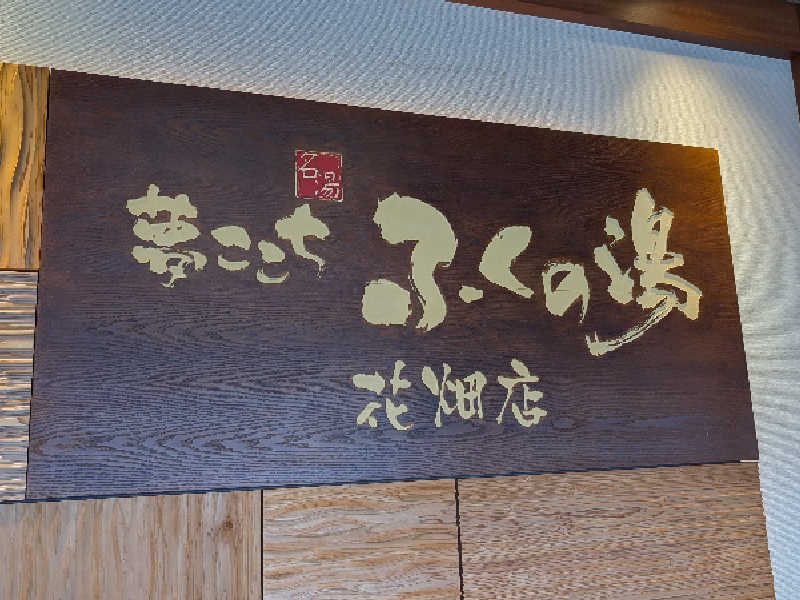 名湯
夢ここち ふくの湯
花畑店